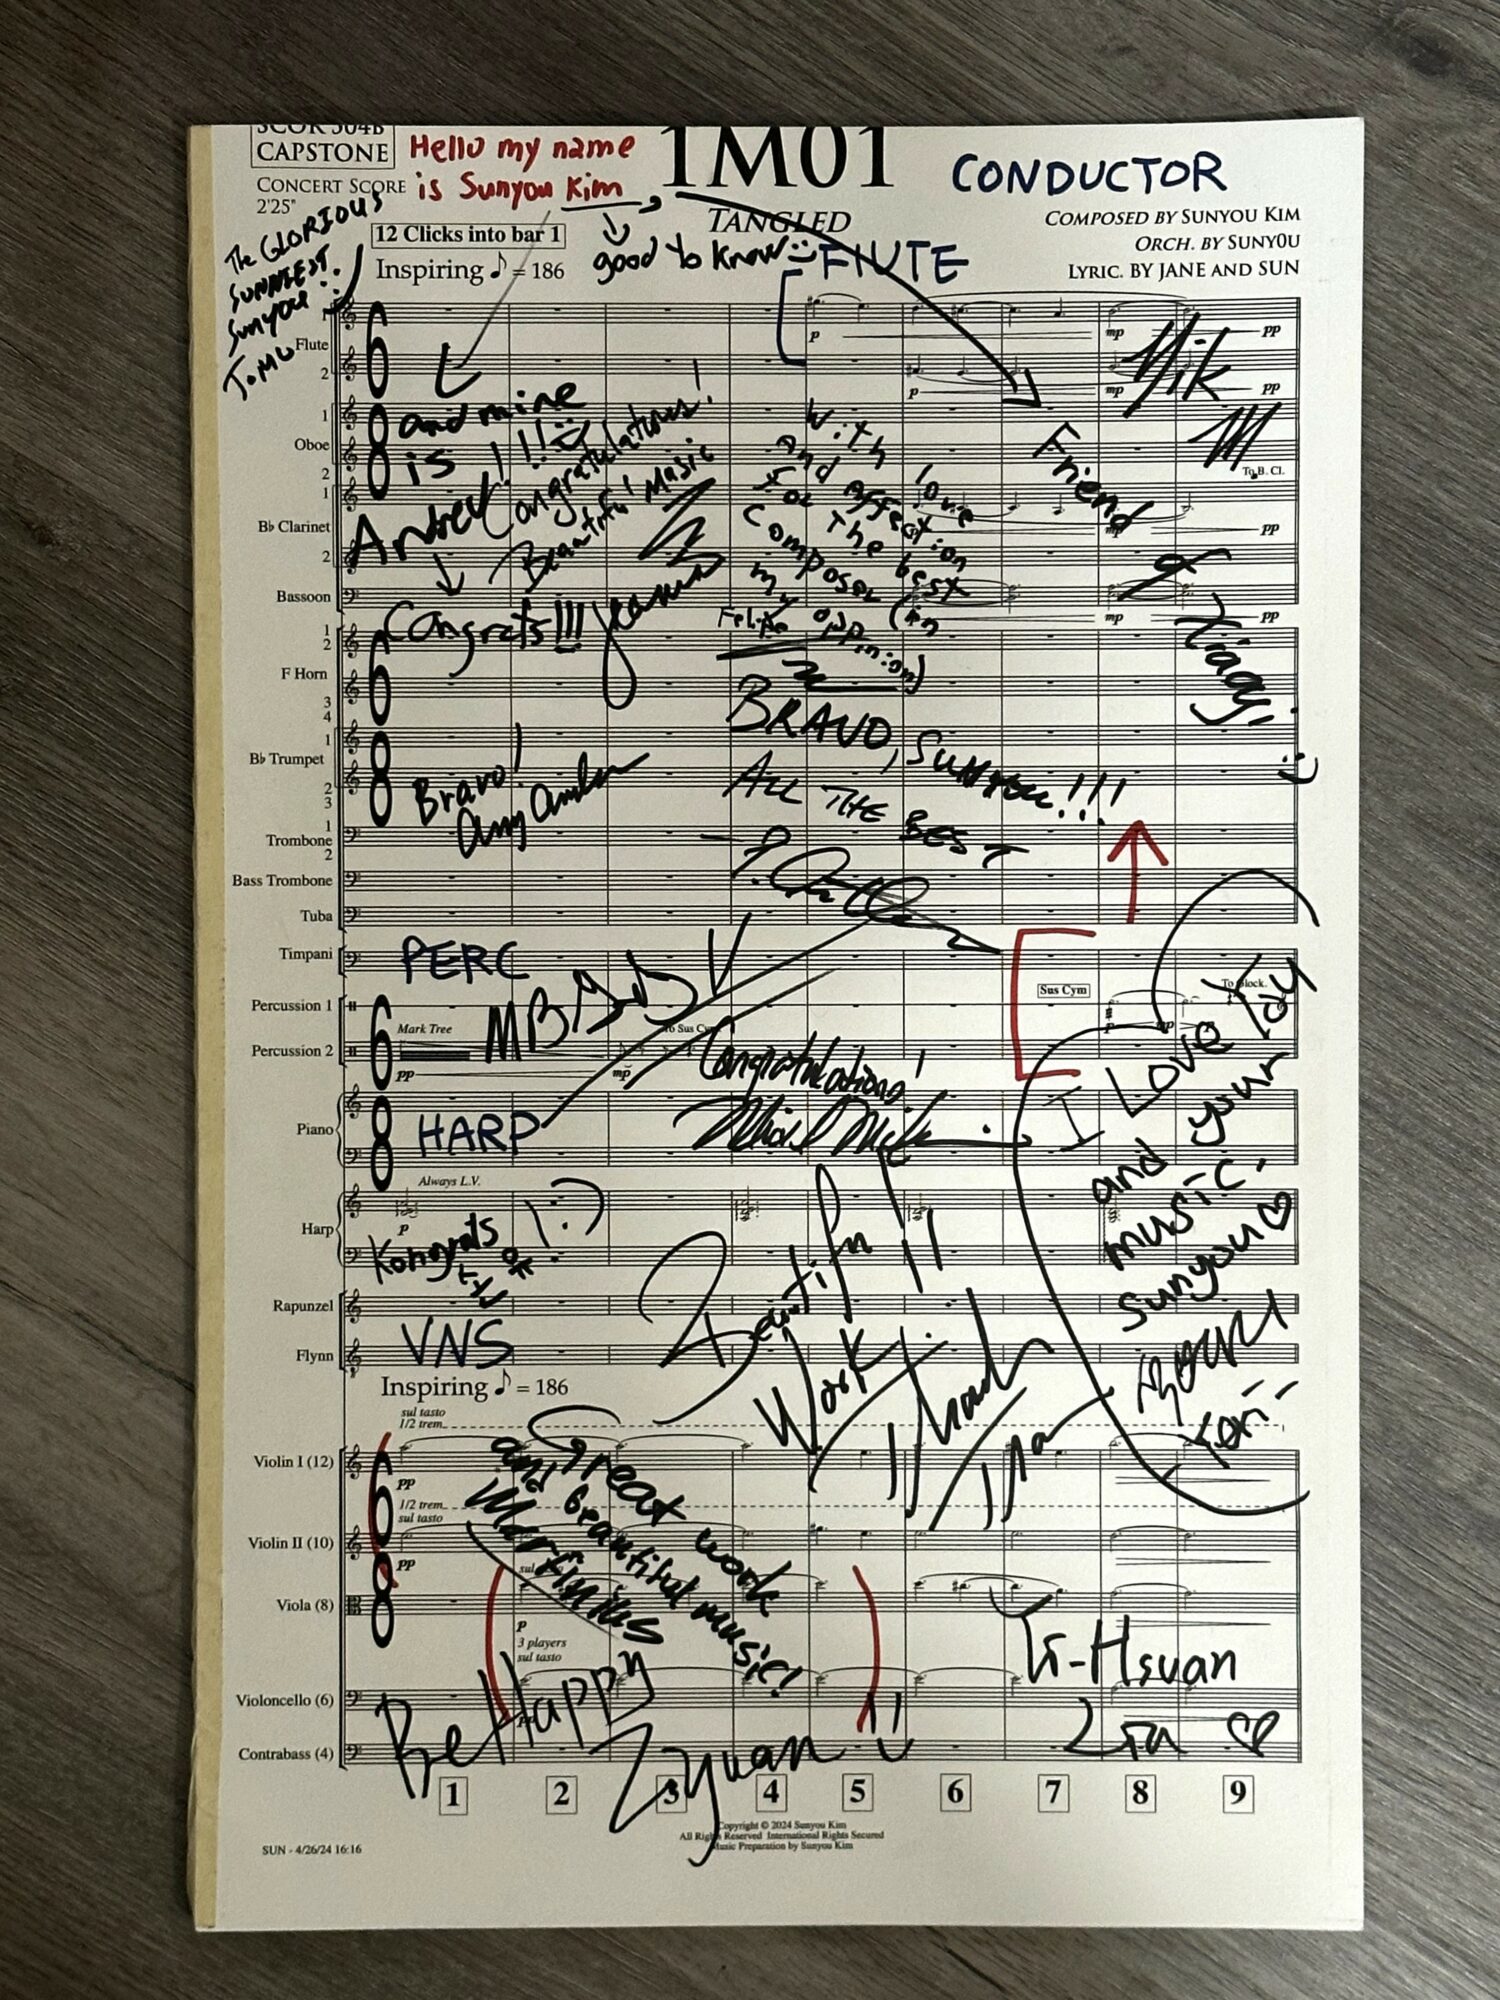 CAPSTONE
Hello my name
is Sunyou Kim
1M01
CONDUCTOR
CONCERT SCORE
2'25"
TANGLED
COMPOSED BY SUNYOU KIM
ORCH. BY SUNY0U
LYRIC. BY JANE AND SUN
The GLORIOUS
SUNNIEST
Sunyou
12 Clicks into bar 1
good to know
FlUTE
Inspiring ♪ = 186
Flute
1
2
p
mp
pp
p
mp
pp
Nik
and mine
is
Andrew
Congrats!!!
Congratulations!
Beautiful Music
With love
and affection
for the best
composer (in
my oppinion)
Felipe
Friend
Oboe
1
2
To B. Cl.
Bb Clarinet
1
2
mp
pp
Bassoon
mp
pp
F Horn
1
2
3
4
BRAVO, Sunyou!!!
ALL THE BEST
Bb Trumpet
1
2
3
Bravo!
Trombone
1
2
Bass Trombone
Tuba
Timpani
PERC
Percussion 1
Sus Cym
To Glock.
Percussion 2
Mark Tree
To Sus Cym
pp
mp
p
mp
Congratulations!
Piano
HARP
I Love You
and your
music
Sunyou
Always L.V.
Harp
p
Kongrats
Beautiful!!
Work
Rapunzel
Flynn
VNS
Inspiring ♪ = 186
sul tasto
1/2 trem.
Violin I (12)
pp
1/2 trem.
sul tasto
Violin II (10)
pp
Great work
and beautiful music!
Viola (8)
p
3 players
sul tasto
Violoncello (6)
Contrabass (4)
Be Happy
Ziyuan
-Hsuan
1 2 3 4 5 6 7 8 9
Copyright © 2024 Sunyou Kim
All Rights Reserved International Rights Secured
Music Preparation by Sunyou Kim
SUN - 4/26/24 16:16